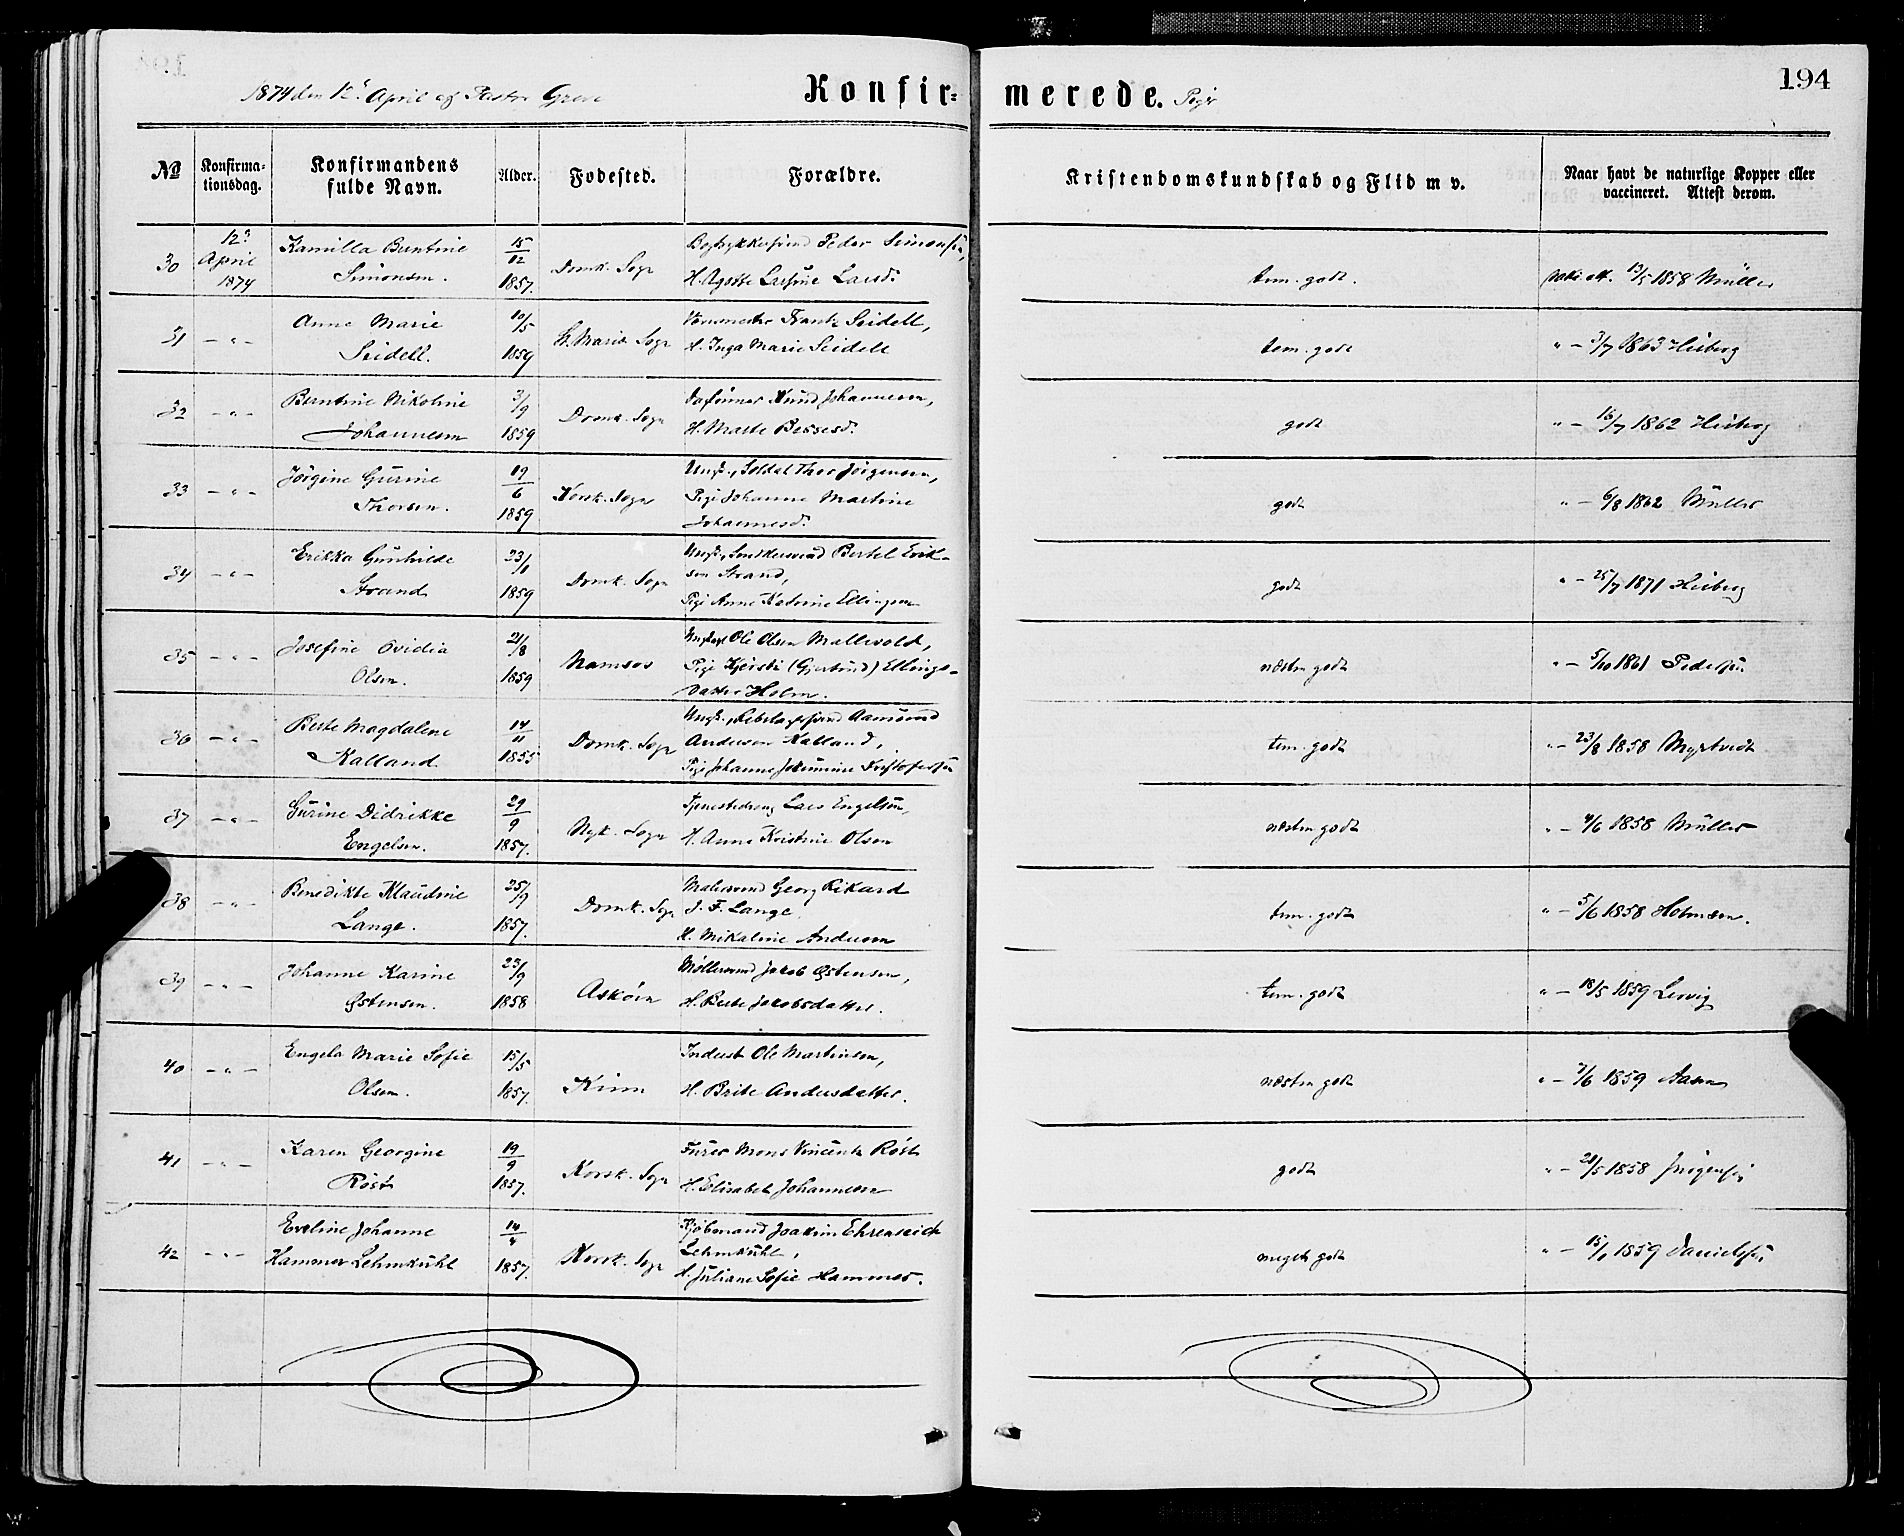 194
1874 den 12te April af Pastor Greve Konfir-merede. Piger
№ Konfirma-tionsdag. Konfirmandens fulde Navn. Alder. Fødested. Forældre. Kristendomskundskab og Flid m v. Naar havt de naturlige Kopper eller vaccineret. Attest derom.
30 12te April 1874 Kamilla Buntine Simonsen. 15/12 1857. Domk. Sogn Peder Simonsen, H. Larsd. tem. godt. 13/5 1858 Müller
31 - " - Anne Marie Seidell. 10/5 1859 St. Mariæ Sogn Frantz Seidell, H. Inga Marie Seidell tem. godt " - 3/7 1863 Heiberg
32 - " - Berntine Nikoline Johannesen 3/9 1859 Domk. Sogn Knud Johannesen, H. Marte godt " - 16/7 1862 Heiberg
33 - " - Jörgine Gurine Thorsen. 19/6 1859 Korsk. Sogn Ungk., Soldat Thor Jörgensen, Pige Johanne Martine Johannesd. godt " - 6/8 1862 Müller
34 - " - Erikka Gunhilde Strand 23/1 1859 Domk. Sogn Ungk., Bertel Erik-sen Strand, Pige Anne Katrine Ellingsen godt " - 25/7 1871 Heiberg
35 - " - Josefine Ovidia Olsen. 21/8 1859 Namsos Ole Olsen Pige Kjersti (Gjertrud) Ellings-datter Holm. næsten godt " - 5/10 1861 Pedersen
36 - " - Berte Magdalene Kalland 14/11 1855 Domk. Sogn Ungk., Aamund Andersen Kalland, Pige Johanne tem. godt " - 23/8 1858
37 - " - Gurine Didrikke Engelsen. 29/9 1857. Nyk. Sogn Tjenestedreng Lars Engelsen, H. Anne Kristine Olsen næsten godt " - 4/6 1858 Müller
38 - " - Benedikte Klaudine Lange. 25/9 1857. Domk. Sogn Malersvend Georg Rikard J. F. Lange, H. Mikaline Andersen tem. godt " - 5/6 1858 Holmsen.
39 - " - Johanne Karine Østensen. 23/9 1858 Asköen Møllersvend Jakob Østensen, H. Berte Jakobsdatter. tem. godt " - 18/5 1859 Lervig
40 - " - Engela Marie Sofie Olsen. 15/5 1857. Kinn Inderst Ole Martinsen, H. Brite Andersdatter. næsten godt " - 7/6 1859 Aasen
41 - " - Karen Georgine Röst 19/9 1857. Korsk. Sogn Furer Mons Vincentz Röst H. Elisabet Johannesen godt " - 28/5 1858 Jörgensen
42 - " - Eveline Johanne Hammer Lehmkühl 14/4 1857. Korsk. Sogn Kjöbmand Joakim Ehrenreich Lehmkühl, H. Juliane Sofie Hammer. meget godt " - 15/1 1859 Danielsen